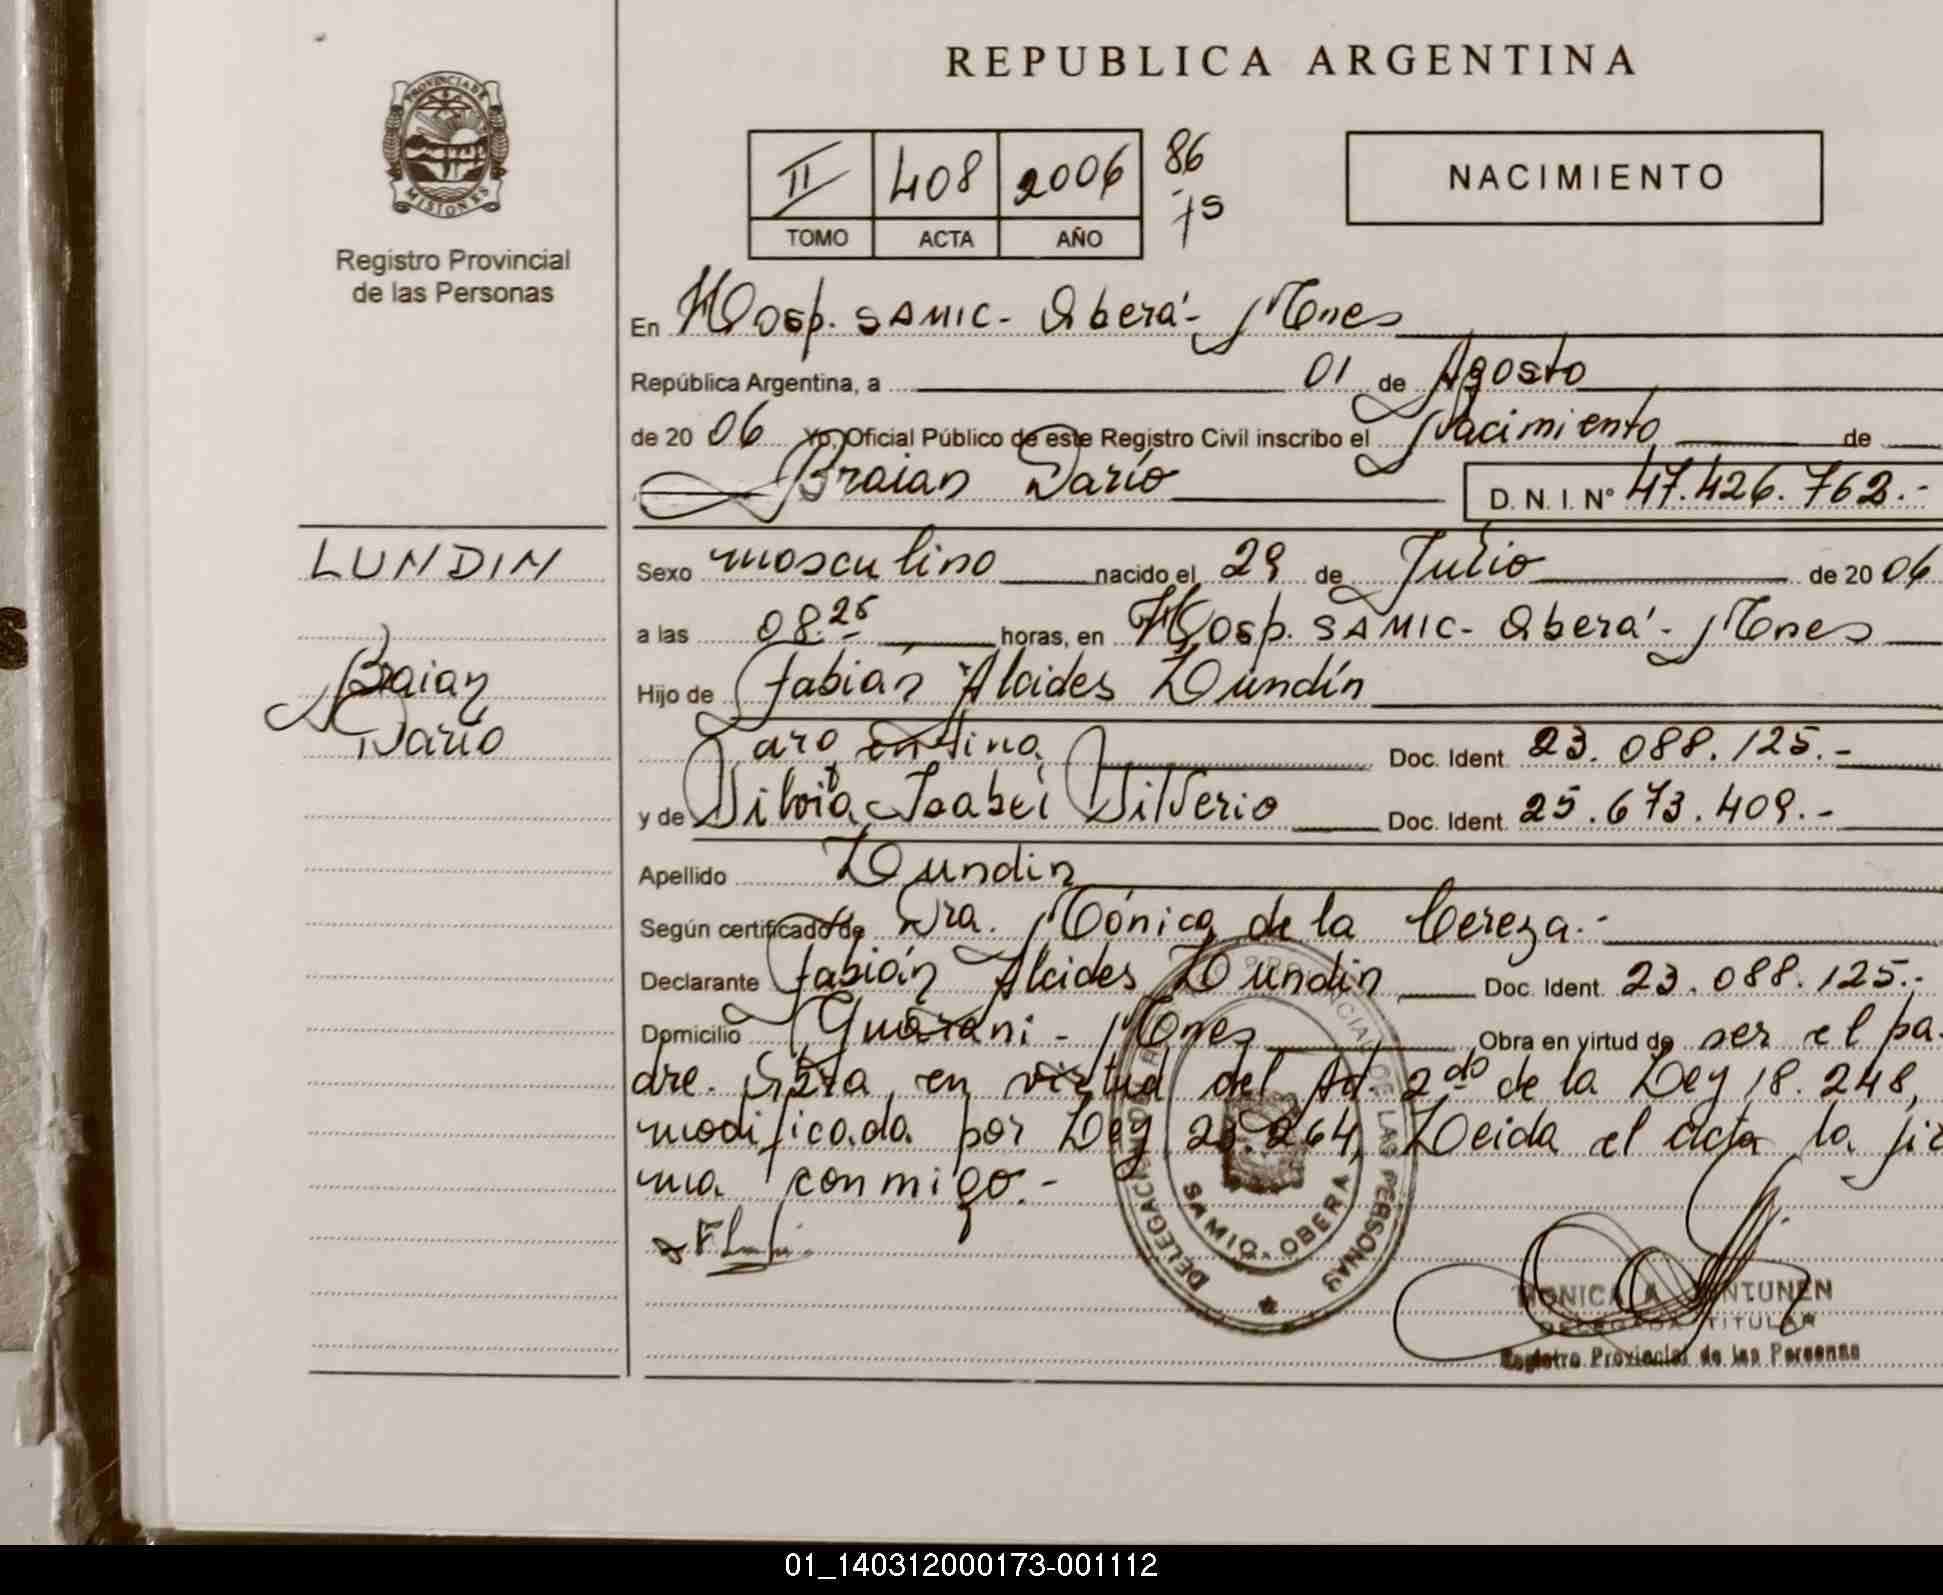 REPUBLICA ARGENTINA
PROVINCIA DE
MISIONES
Registro Provincial
de las Personas
II 408 2006 86
75
TOMO ACTA AÑO
NACIMIENTO
En Hosp. SAMIC - Oberá - Mnes
República Argentina, a 01 de Agosto
de 20 06 Yo, Oficial Público de este Registro Civil inscribo el Nacimiento de
Braian Darío D. N. I. N° 47.426.762.-
LUNDIN
Braian
Darío
Sexo masculino nacido el 29 de Julio de 20 06
a las 08.25 horas, en Hosp. SAMIC - Oberá - Mnes
Hijo de Fabián Alcides Lundín
argentino Doc. Ident. 23.088.125.-
y de Silvia Isabel Silverio Doc. Ident. 25.673.409.-
Apellido Lundin
Según certificado de Dra. Mónica de la Cereza.-
Declarante Fabián Alcides Lundin Doc. Ident. 23.088.125.-
Domicilio Guaraní - Mnes Obra en virtud de ser el pa-
dre. en virtud del Ad. 2do de la Ley 18.248,
modificada por Ley 23.264, Leida el acta la fir
ma conmigo.-
DELEGACION PROVINCIAL DE LAS PERSONAS
SAMIC - OBERA
MONICA A.
DELEGADA TITULAR
Registro Provincial de las Personas
01_140312000173-001112